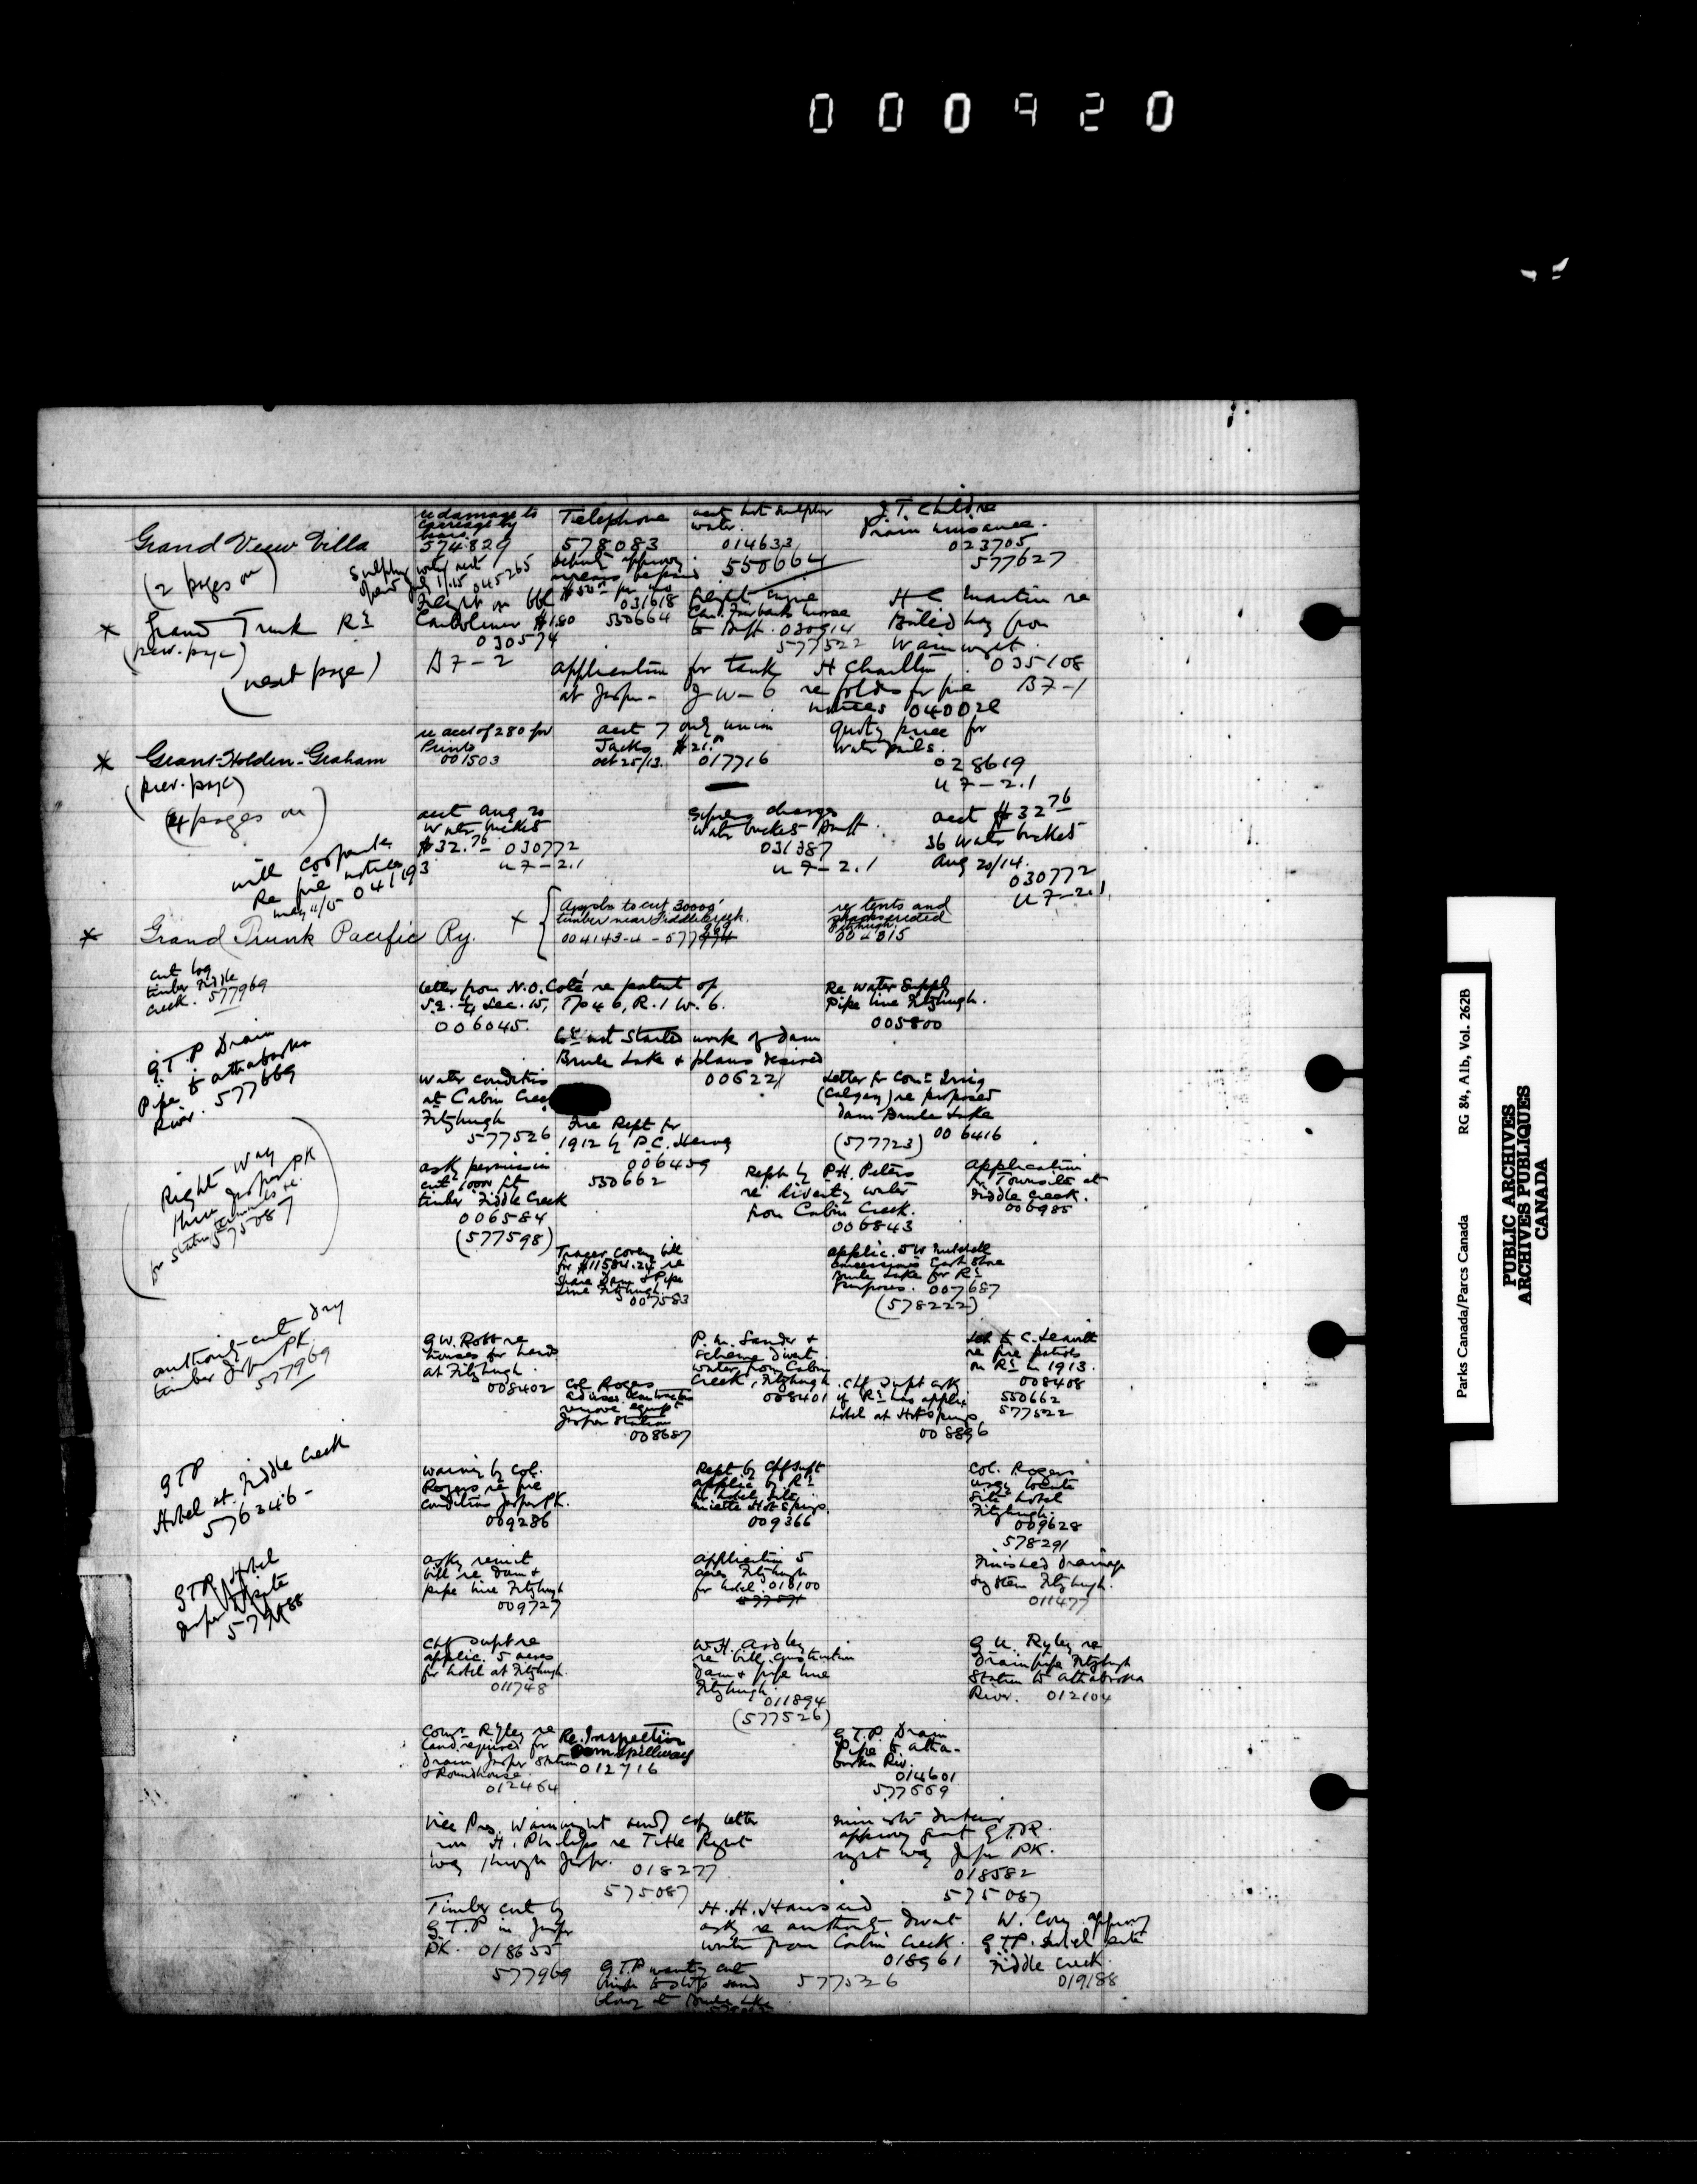 000920
Grand View Villa
(2 pages on)
re damage to
carriage by
574829
Telephone
578083
acct hot sulphur
water.
014633
550664
J.T. Childre
Drain nuisance.
023705
577627
045265
* Grand Trunk Ry
(prev. page)
(next page)
Freight on bbl
Carbolineum $1.80
030574
B7-2
031618
550664
freight engine
Can. Fairbanks Morse
to Banff. 030914
577522
H C Martin re
Baled hay from
Wainwright.
035108
B7-1
application for tank
at Jasper - J-W-6
H Charlton
re folders for fire
notices 040020
* Grant-Holden-Graham
(prev. page)
(4 pages on)
re acct of 280 for
Prints
001503
acct 7 only union
Jacks $21.00
oct 25/13. 017716
quoting price for
water pails.
028619
U7-2.1
acct Aug 20
Water buckets
$32.76 030772
U7-2.1
Express charges
Water buckets Banff
031387
U7-2.1
acct $32.76
36 water buckets
Aug 20/14.
030772
U7-2.1
will cooperate
Re fire notices
may 11/15 041193
* Grand Trunk Pacific Ry.
Appln to cut 30000'
timber near Fiddle Creek.
004143-4 - 577969
re tents and
shacks erected
Fitzhugh
004815
cut log
timber Fiddle
Creek. 577969
letter from N.O. Coté re patent of
S.E. ¼ Sec. 15, Tp 46, R.1 W.6.
006045.
Re water supply
Pipe line Fitzhugh.
005800
G.T.P Drain
Pipe to Athabaska
River. 577669
Co. not started work of dam
Brule Lake & plans desired
006221
Water conditions
at Cabin Creek
Fitzhugh
577526
Fire Rept for
1912 by P.C. Hervey
006459
550662
Letter fr Comr Irrig
(Calgary) re proposed
dam Brule Lake
(577723) 006416
Right Way
thro Jasper PK
for station terminals etc.
575087
ask permission
cut 1000 ft
timber Fiddle Creek
006584
(577598)
Rept by P.H. Peters
re diverting water
from Cabin Creek.
006843
Application
for Townsite at
Fiddle Creek.
006985
Tracer covering bill
for $11584.24 re
share Dam & Pipe
Line Fitzhugh.
007583
applic. J W Mitchell
concessions East Shore
Brule Lake for Ry
purposes. 007687
(578222)
authority cut dry
timber Jasper PK.
577969
G.W. Robb re
houses for hands
at Fitzhugh.
008402
Col. Rogers
advises contractors
remove equipt
Jasper Station
008687
P.M. Sander &
scheme divert
water from Cabin
Creek, Fitzhugh.
008401
Chf Supt ask
if Ry has applic
hotel at Hot Springs
008896
Let to C. Leavitt
re fire patrols
on Ry in 1913.
008408
550662
577522
GTP
Hotel at Fiddle Creek
576246-
warning by Col.
Rogers re fire
condition Jasper PK.
009286
Rept by Chf Supt
applic by Ry
for hotel site
Miette Hot Springs.
009366
Col. Rogers
urges locate
site hotel
Fitzhugh.
009628
578291
GTP. Hotel
Jasper Site
asks remit
bill re dam &
pipe line Fitzhugh
009727
application 5
acres Fitzhugh
for hotel. 010100
Finished Drainage
System Fitzhugh.
011477
Chf Supt re
applic. 5 acres
for hotel at Fitzhugh.
011748
W.H. Ardley
re bill construction
dam & pipe line
Fitzhugh
011894
(577526)
G.U. Ryley re
Drain pipe Fitzhugh
Station to Athabaska
River. 012104
Comr Ryley re
land required for
drain Jasper Station
& Roundhouse.
012464
Re. Inspection
Dam spillway
012716
G.T.P Drain
Pipe to Atha-
baska Riv.
014601
577669
Vice Pres. Wainwright sends copy letter
from H. Philips re Title Right
Way through Jasper. 018277
575087
Minister Interior
approves grant G.T.P.
right way Jasper PK.
018582
575087
Timber cut by
G.T.P in Jasper
PK. 018655
577969
H.H. Hansard
asks re authority divert
water from Cabin Creek.
018961
577526
W. Cory approves
G.T.P. hotel site
Fiddle Creek
019188
G.T.P wants cut
timber to stop sand
blowing at Brule Lake
Parks Canada/Parcs Canada RG 84, Alb, Vol. 262B
PUBLIC ARCHIVES
ARCHIVES PUBLIQUES
CANADA